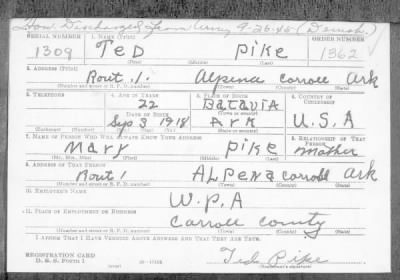 Hon. Discharged from Army 9-26-45 (Demob.)
SERIAL NUMBER 1. NAME (Print) ORDER NUMBER
1309 Ted Pike 1362
(First) (Middle) (Last)
2. ADDRESS (Print)
Rout. 1. Alpena Carroll Ark
(Number and street or R. F. D. number) (Town) (County) (State)
3. TELEPHONE 4. AGE IN YEARS 5. PLACE OF BIRTH 6. COUNTRY OF CITIZENSHIP
22 Batavia
DATE OF BIRTH (Town or county)
Sep 3 1918 Ark U.S.A
(Exchange) (Number) (Mo.) (Day) (Yr.) (State or country)
7. NAME OF PERSON WHO WILL ALWAYS KNOW YOUR ADDRESS 8. RELATIONSHIP OF THAT PERSON
Mary Pike Mother
(Mr., Mrs., Miss) (First) (Middle) (Last)
9. ADDRESS OF THAT PERSON
Rout 1 ALPENA Carroll Ark
(Number and street or R. F. D. number) (Town) (County) (State)
10. EMPLOYER'S NAME
W.P.A
11. PLACE OF EMPLOYMENT OR BUSINESS
Carroll County
(Number and street or R. F. D. number) (Town) (County) (State)
I AFFIRM THAT I HAVE VERIFIED ABOVE ANSWERS AND THAT THEY ARE TRUE.
REGISTRATION CARD
D. S. S. Form 1 Ted Pike
(over) (Registrant's signature)